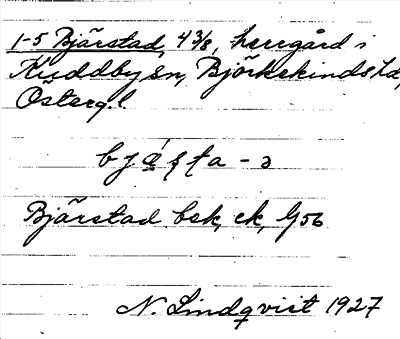 1-5 Bjärstad, 4 3/8, herrgård i
Kuddby sn, Björkekinds hd,
Österg. l.
Bjärstad bsk, ek, G56
N. Lindqvist 1927